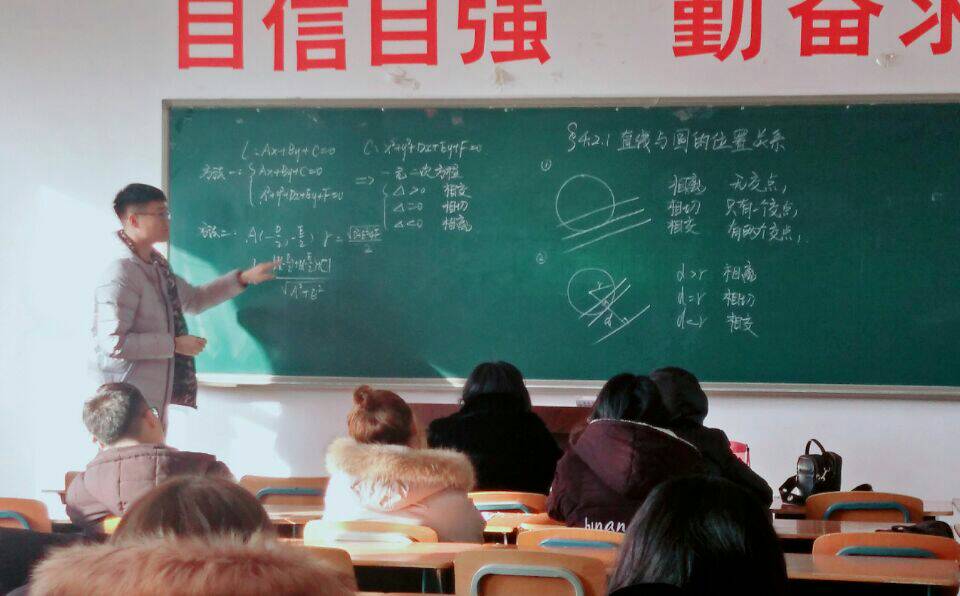 自信自强 勤奋求
L: Ax+By+C=0 C: x²+y²+Dx+Ey+F=0
方法一: { Ax+By+C=0
x²+y²+Dx+Ey+F=0
=> 一元二次方程
Δ>0 相交
Δ=0 相切
Δ<0 相离
方法二: A(-D/2, -E/2) r=
√A²+B²
§4.2.1 直线与圆的位置关系
①
相离 无交点,
相切 只有一个交点,
相交 有两个交点,
②
r
d
d>r 相离
d=r 相切
d<r 相交
hunan